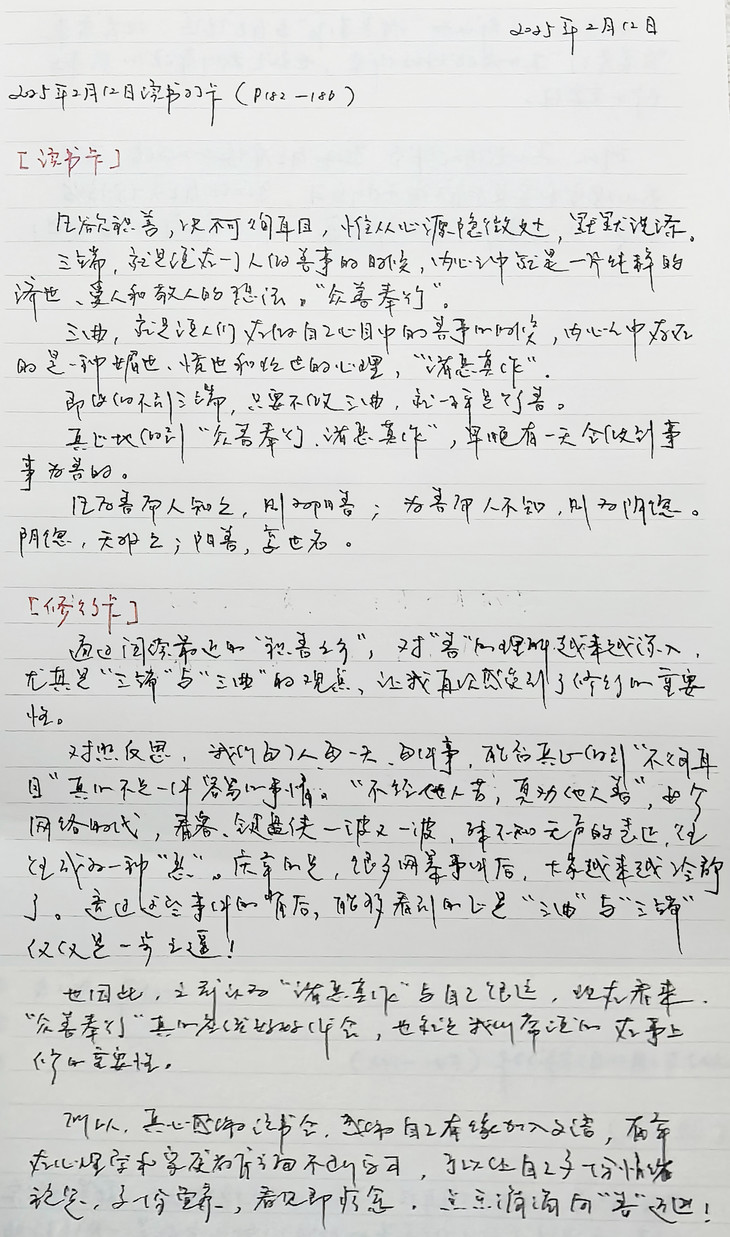 2025年2月12日
2025年2月12日读书打卡（P182-186）
[读书卡]
凡欲积善，决不可徇耳目，惟从心源隐微处，默默洗涤。
三端，就是说在一个人做善事的时候，内心之中就是一片纯粹的
济世、爱人和敬人的想法。“众善奉行”。
三曲，就是说人们在做自己心目中的善事的时候，内心之中存在
的是一种媚世、愤世和玩世的心理，“诸恶莫作”.
即使做不到三端，只要不做三曲，就一样是行善。
真正地做到“众善奉行、诸恶莫作”，早晚有一天会做到事
事为善的。
凡为善而人知之，则为阳善；为善而人不知，则为阴德。
阴德，天报之；阳善，享世名。
[修行卡]
通过阅读最近的“积善之方”，对“善”的理解越来越深入，
尤其是“三端”与“三曲”的观点，让我再次感受到了修行的重要
性。
对照反思，我们每个人每一天、每件事，能否真正做到“不徇耳
目”真的不是一件容易的事情。“不经他人苦，莫劝他人善”，如今
网络时代，看客、键盘侠一波又一波，殊不知无声的表达，往
往成为一种“恶”。庆幸的是，很多网暴事件后，大家越来越冷静
了。透过这些事件的背后，能够看到的正是“三曲”与“三端”
仅仅是一步之遥！
也因此，之前认为“诸恶莫作”与自己很远，现在看来，
“众善奉行”真的应该好好体会，也就是我们常说的在事上
修的重要性。
所以，真心感谢读书会，感谢自己有缘加入，有幸
在心理学和家庭教育方面不断学习，予以让自己多一份情绪
稳定，多一份学养，看见即疗愈，点点滴滴向“善”迈进！